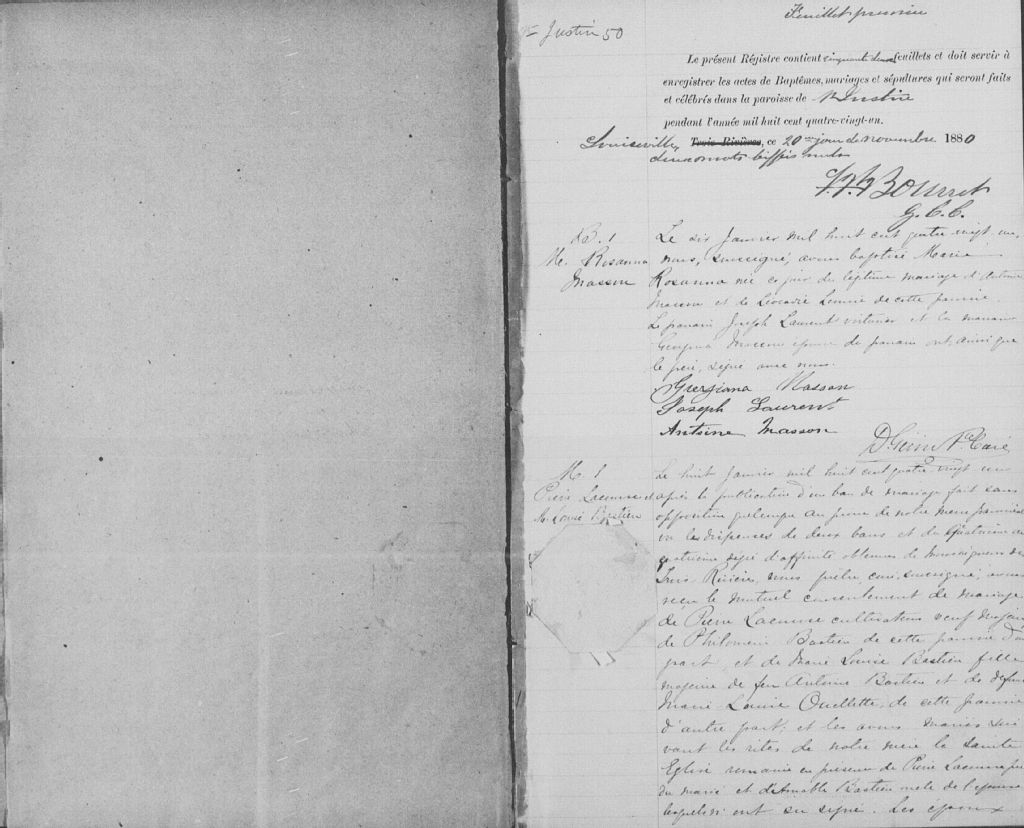 Feuillet premier
St Justin 50
Le présent Régistre contient cinquante deux feuillets et doit servir à
enregistrer les actes de Baptêmes, mariages et sépultures qui seront faits
et célébrés dans la paroisse de St Justin
pendant l'année mil huit cent quatre-vingt-un.
Louiseville, Trois-Rivières, ce 20 me jour de novembre 1880
deux mots biffés nuls
Bourret
G. C. C.
B. 1
M. Rosanna
Masson
Le six Janvier mil huit cent quatre vingt un,
nous, soussigné, avons baptisé Marie
Rosanna née ce jour du légitime mariage d'Antoine
Masson et de Léocadie de cette paroisse.
Le parrain Joseph Laurent et la marraine
Georgiana Masson épouse du parrain ont ainsi que
le père, signé avec nous.
Georgiana Masson
Joseph Laurent
Antoine Masson
D. Gérin Ptre Curé
M. 1
Pierre Lacourse et
M. Louise Bastien
Le huit Janvier mil huit cent quatre vingt un
après la publication d'un ban de mariage fait sans
opposition quelconque au prône de notre messe paroissiale
vu les dispenses de deux bans et du quatrième au
quatrième degré d'affinité obtenues de Monseigneur des
Trois Rivières, nous prêtre, curé, soussigné, avons
reçu le mutuel consentement de mariage
de Pierre Lacourse cultivateur veuf majeur
de Philomène Bastien de cette paroisse d'une
part, et de Marie Louise Bastien fille
majeure de feu Antoine Bastien et de défunte
Marie Louise Ouellette, de cette paroisse
d'autre part; et les avons mariés sui
vant les rites de notre mère la sainte
Eglise romaine en présence de Pierre Lacourse père
du marié et d'Amable Bastien oncle de l'épouse
lesquels ont su signé. Les époux